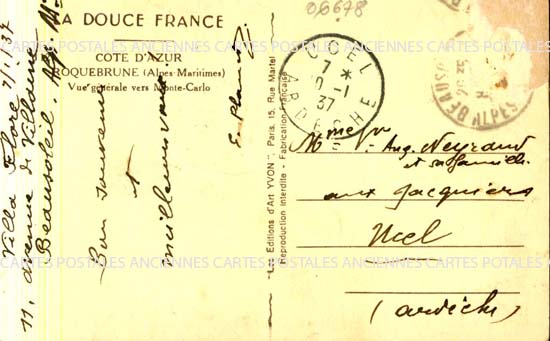 LA DOUCE FRANCE
COTE D'AZUR
ROQUEBRUNE (Alpes-Maritimes)
Vue générale vers Monte-Carlo
Villa Flore 7/1/37
11, avenue de Villaine
Beausoleil. Alp. M
Bon souvenir
et
meilleurs vœux
E. Planet
"Les Editions d'Art YVON", Paris, 15, Rue Martel
Reproduction interdite - Fabrication Française
06678
UCEL
7 *
10 -1
37
ARDECHE
BEAUSO
ALPES
Aug. Neyrand
et sa famille
aux Jacquiers
Ucel
(Ardèche)
CARTES POSTALES ANCIENNES CARTES POSTALES ANCIENNES CARTES POSTALES
CARTES POSTALES ANCIENNES CARTES POSTALES ANCIENNES CARTES POSTALES